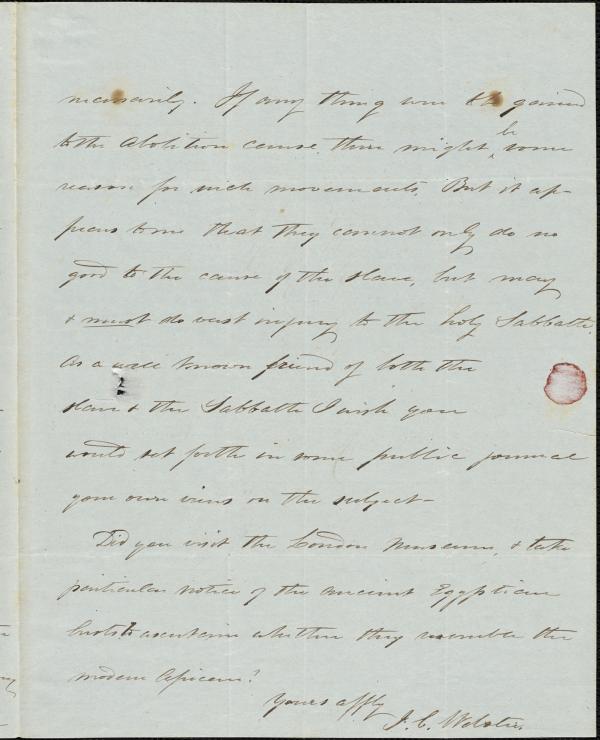 necessarily. If any thing were to be gained
to the Abolition cause, there might be some
reason for such movements. But it ap-
pears to me that they cannot only do no
good to the cause of the slave, but may
& must do vast injury to the holy Sabbath.
As a well known friend of both the
slave & the Sabbath I wish you
would set forth in some public journal
your own views on the subject—
Did you visit the London Museum, & take
particular notice of the ancient Egyptian
busts to ascertain whether they resemble the
modern African?
Yours affly
J. C. Webster.